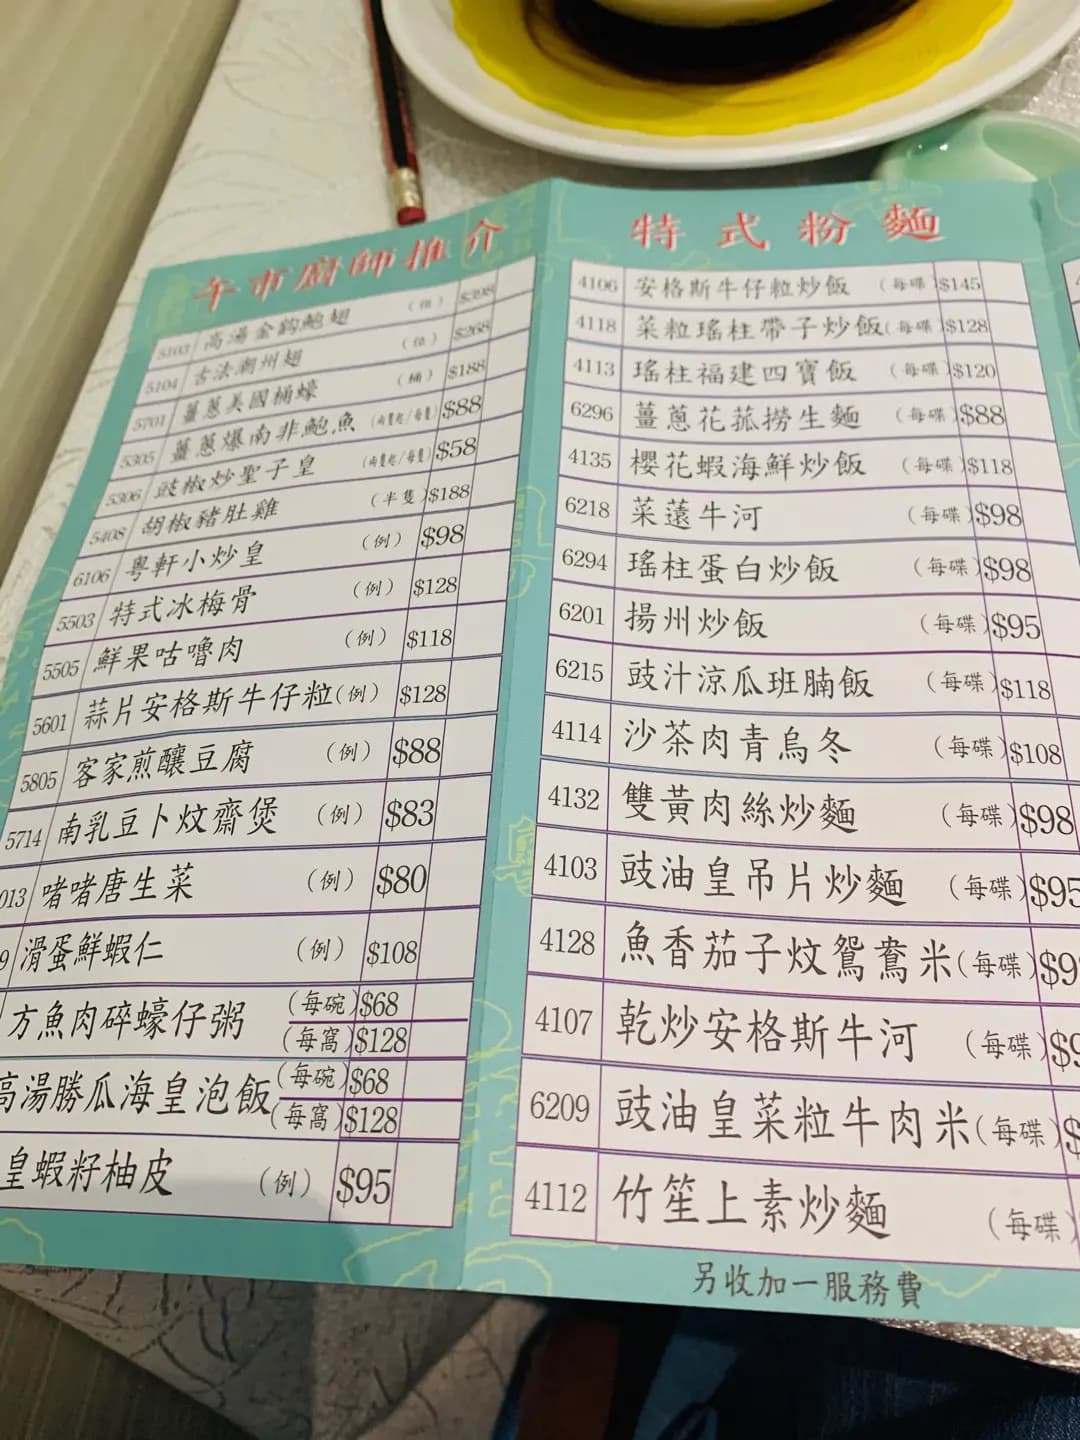 午市廚師推介
5103 高湯金鈎鮑翅 （位） $398
5104 古法潮州翅 （位） $268
5701 薑蔥美國桶蠔 （桶） $188
5305 薑蔥爆南非鮑魚 （兩隻起/每隻） $88
5306 豉椒炒聖子皇 （兩隻起/每隻） $58
5408 胡椒豬肚雞 （半隻） $188
6106 粵軒小炒皇 （例） $98
5503 特式冰梅骨 （例） $128
5505 鮮果咕嚕肉 （例） $118
5601 蒜片安格斯牛仔粒（例） $128
5805 客家煎釀豆腐 （例） $88
5714 南乳豆卜炆齋煲 （例） $83
013 啫啫唐生菜 （例） $80
9 滑蛋鮮蝦仁 （例） $108
方魚肉碎蠔仔粥 （每碗）$68
（每窩）$128
高湯勝瓜海皇泡飯（每碗）$68
（每窩）$128
皇蝦籽柚皮 （例） $95
特式粉麵
4106 安格斯牛仔粒炒飯 （每碟）$145
4118 菜粒瑤柱帶子炒飯（每碟）$128
4113 瑤柱福建四寶飯 （每碟）$120
6296 薑蔥花菰撈生麵 （每碟）$88
4135 櫻花蝦海鮮炒飯 （每碟）$118
6218 菜薳牛河 （每碟）$98
6294 瑤柱蛋白炒飯 （每碟）$98
6201 揚州炒飯 （每碟）$95
6215 豉汁涼瓜班腩飯 （每碟）$118
4114 沙茶肉青烏冬 （每碟）$108
4132 雙黃肉絲炒麵 （每碟）$98
4103 豉油皇吊片炒麵 （每碟）$95
4128 魚香茄子炆鴛鴦米（每碟）$9
4107 乾炒安格斯牛河 （每碟）$9
6209 豉油皇菜粒牛肉米（每碟）$
4112 竹笙上素炒麵 （每碟）
另收加一服務費